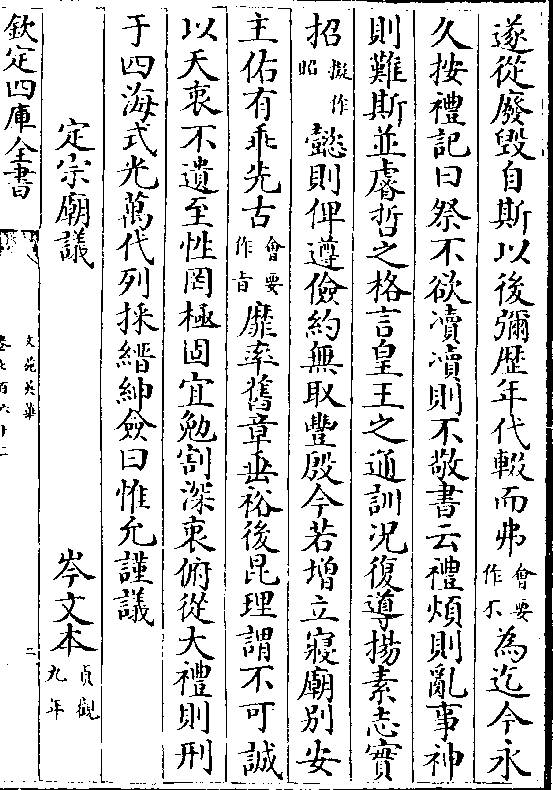 遂從廢毀自斯以後彌歴年代輟而弗會要作不為迄今永
久按禮記曰祭不欲凟凟則不敬書云禮煩則亂事神
則難斯並睿哲之格言皇王之通訓况復導揚素志實
招擬作昭懿則俾遵儉約無取豐殷今若增立寢廟別安
主佑有乖先古會要作旨靡率舊章垂裕後昆理謂不可誠
以天衷不遺至性罔極固宜勉割深衷俯從大禮則刑
于四海式光萬代列採縉紳僉曰惟允謹議
定宗廟議 岑文本貞觀九年
欽定四庫全書
文苑英華